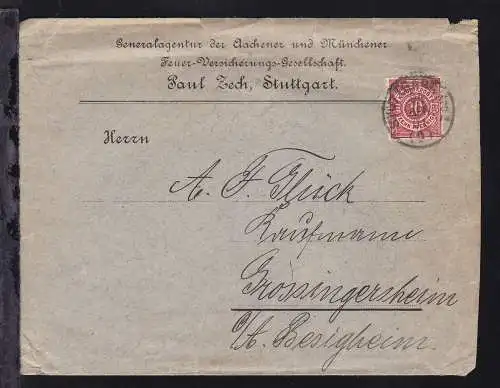 Generalagentur der Aachener und Münchener
Feuer-Versicherungs-Gesellschaft.
Paul Zech, Stuttgart.
Herrn
A. F. Glück
Kaufmann
Grossingersheim
O/A. Besigheim.
10